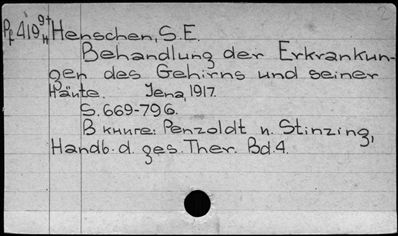 Pf 419 9+н Henschen, S.E.
Behandlung der Erkrankun-
gen des Gehirns und seiner
Häute. Jena, 1917.
S. 669-796.
В книге: Penzoldt и. Stinzing,
Handb. d. ges. Ther. Bd. 4.